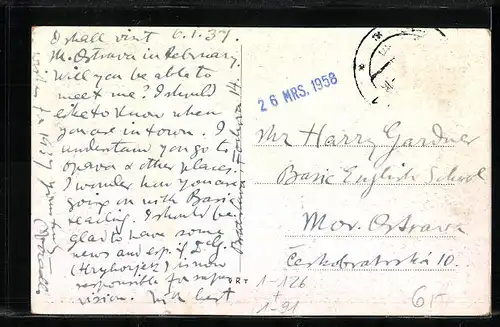 I shall visit 6.1.37.
M. Ostrava in February.
Will you be able to
meet me? I should
like to know when
you are in town. I
understand you go to
Opava & other places.
I wonder how you are
going on with Basic
reading. I should be
glad to have some
news and esp. if
(Hryhorjek) is now
responsible for super-
vision. With best
Fochova 14.
26 MRS. 1958
Mr Harry Gardner
Basic English School
Mor. Ostrava
Českobratrská 10.
1-126
1-91
65